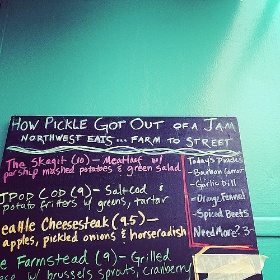 HOW PICKLE GOT OUT OF A JAM
NORTHWEST EATS... FARM TO STREET
The Skagit (10) - Meatloaf w/
parsnip mashed potatoes & green salad
POD (9) - Salt cod &
potato fritters w/ greens, tartar
eattle Cheesesteak (9.5) -
apples, pickled onions & horseradish
e Farmstead (9) - Grilled
w/ brussels sprouts, cranberry
Today's Pickles
- Bourbon Carrot
- Garlic Dill
- Orange Fennel
- Spiced Beets
Need More? 3-